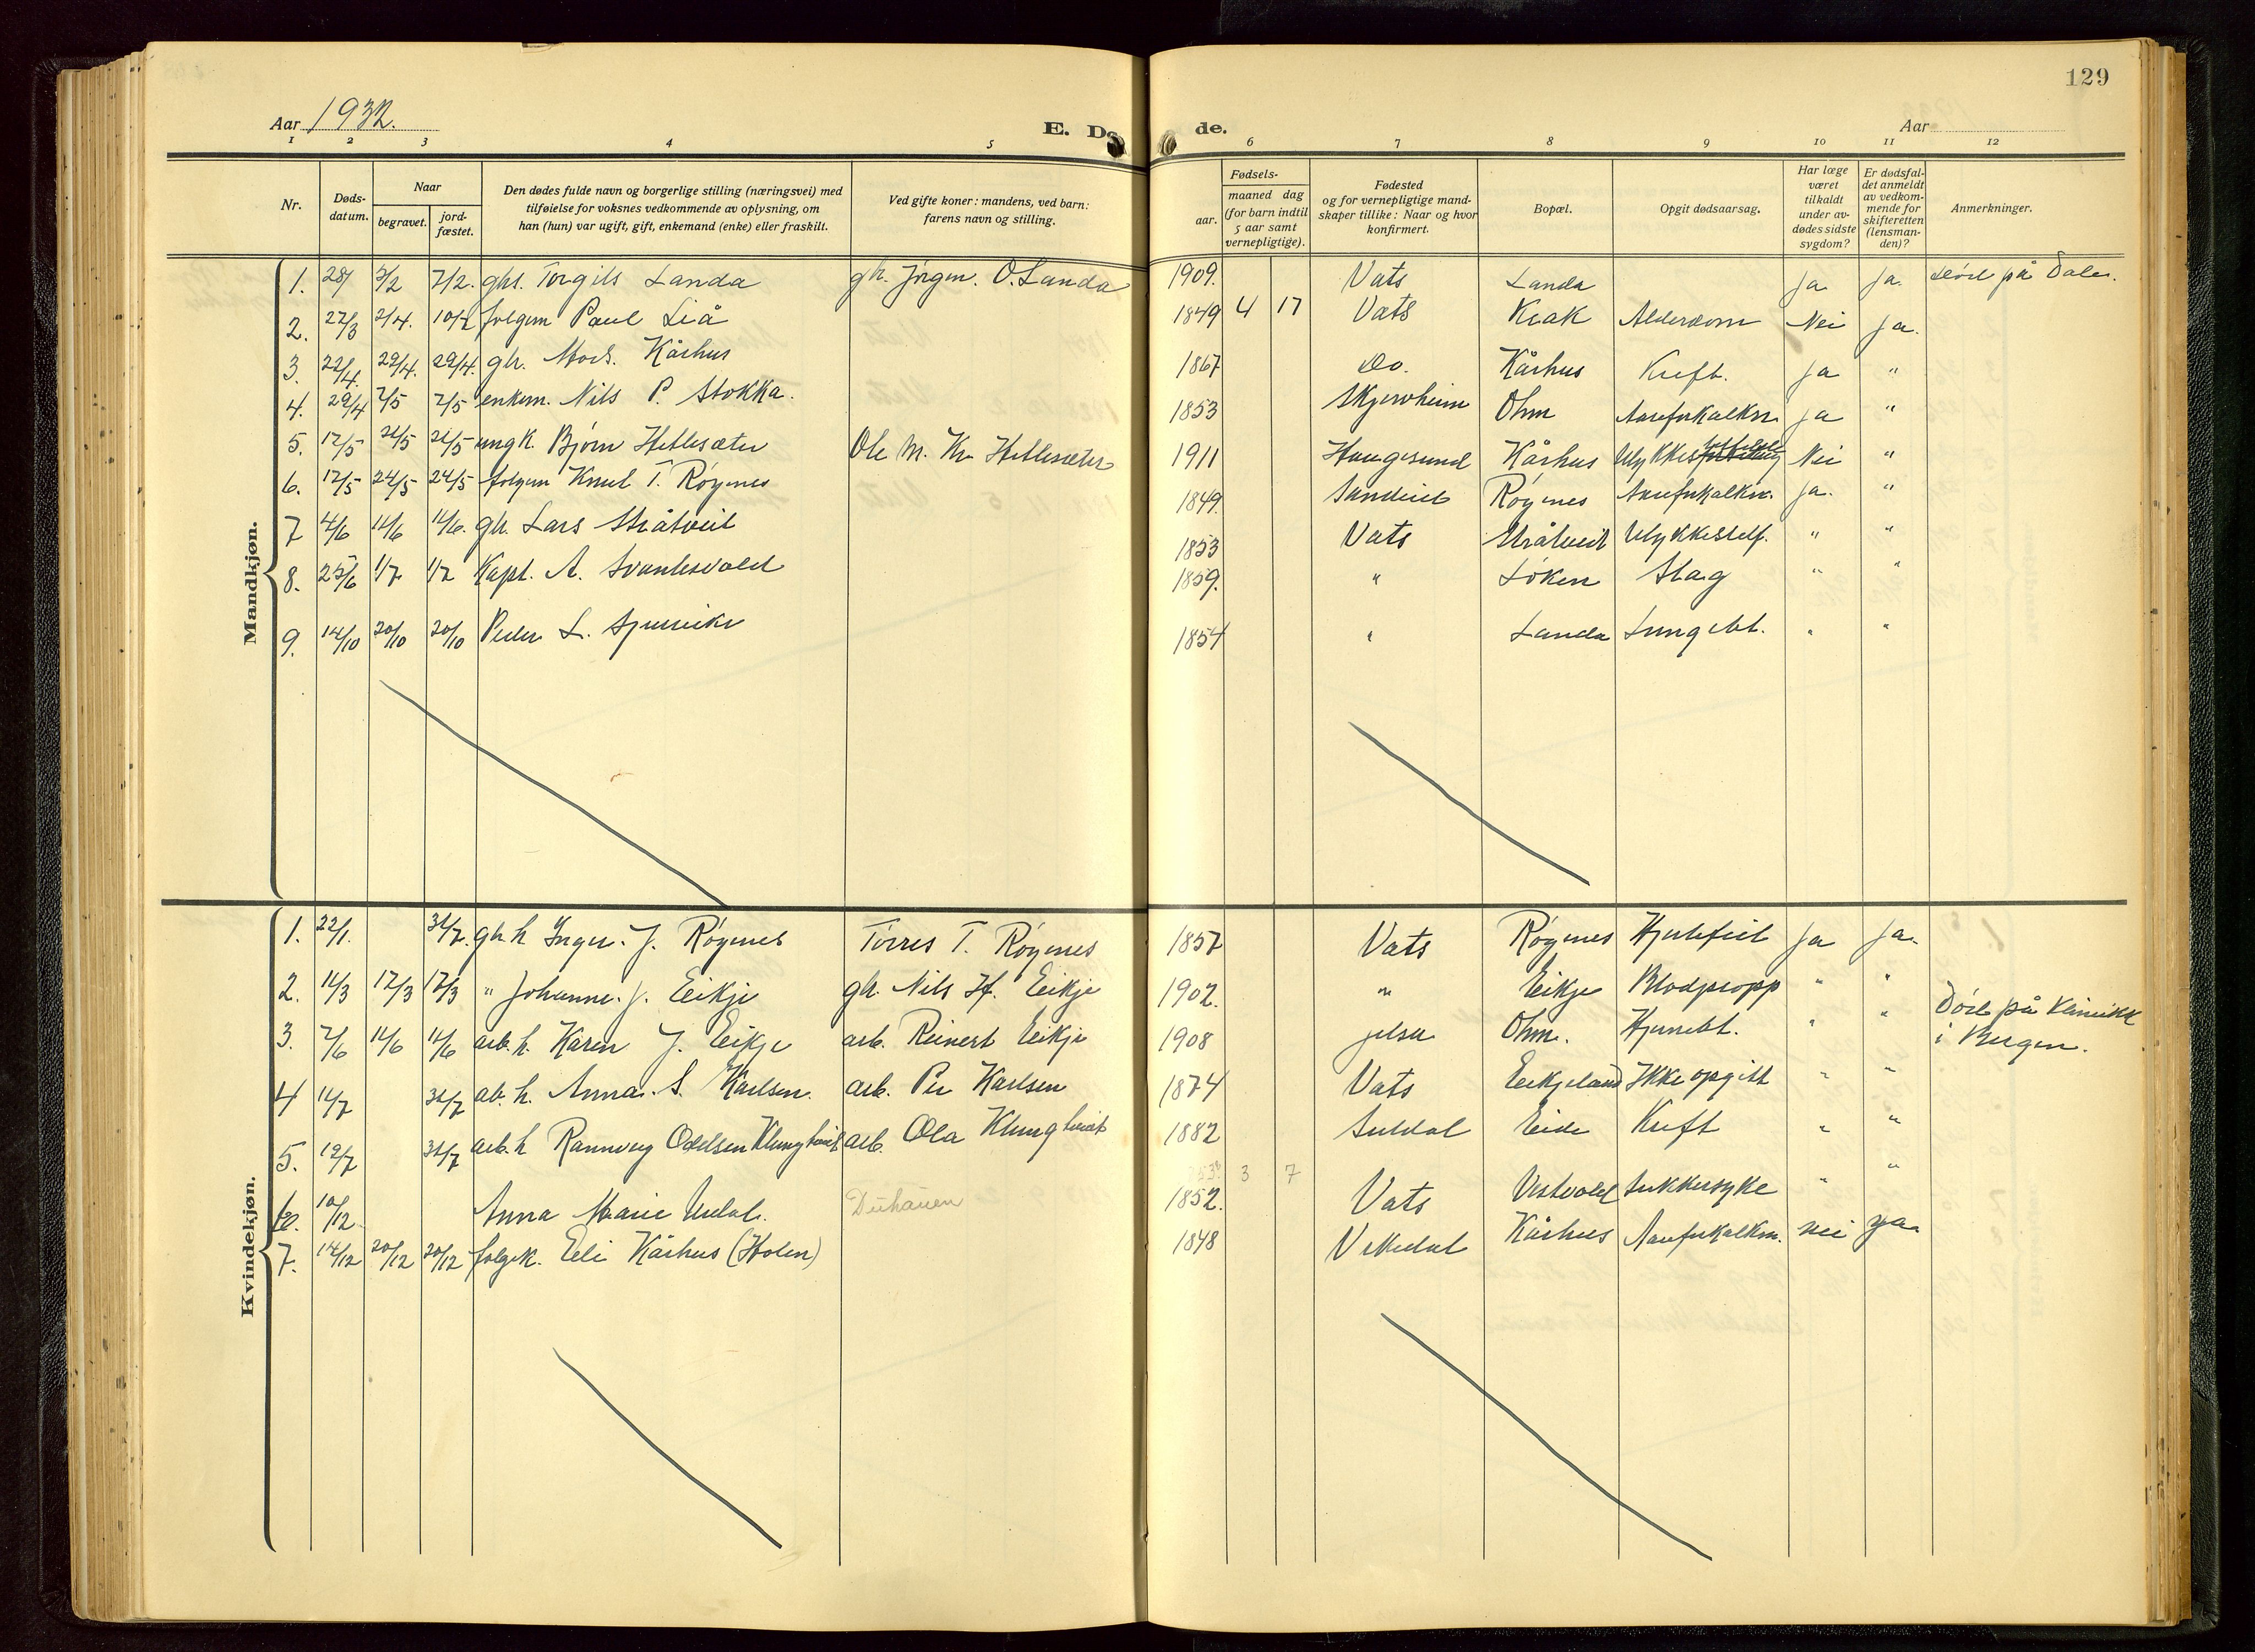 129
Aar 1932.
E. D
de.
Aar
1 2 3 4 5 6 7 8 9 10 11 12
Nr.
Døds-datum.
Naar
begravet.
jord-fæstet.
Den dødes fulde navn og borgerlige stilling (næringsvei) med
tilføielse for voksnes vedkommende av oplysning, om
han (hun) var ugift, gift, enkemand (enke) eller fraskilt.
Ved gifte koner: mandens, ved barn:
farens navn og stilling.
Fødsels-
aar.
maaned dag
(for barn indtil
5 aar samt
vernepligtige).
Fødested
og for vernepligtige mand-
skaper tillike: Naar og hvor
konfirmert.
Bopæl.
Opgit dødsaarsag.
Har læge
været
tilkaldt
under av-
dødes sidste
sygdom?
Er dødsfal-
det anmeldt
av vedkom-
mende for
skifteretten
(lensman-
den)?
Anmerkninger.
Mandkjøn.
1. 7/2. Torgils Landa gb. Jørgen. O. Landa 1909. Vats Landa Ja Ja. død på Dale.
2. 22/3 2/4. folgem Paul Liå 1849 4 17 Vats Alderdom Nei Ja.
3. 22/4. 29/4. 29/4. gb. Kårhus 1867 Do. Kårhus Kreft. Ja "
4. 29/4 7/5 7/5 enkem. Nils P. Stokka. 1853 Ohm Aareforkalkn. Ja "
5. 12/5 21/5 21/5 ungk. Bjørn Hetlesæter Ole M. Kr. Hetlesæter 1911 Haugesund Kårhus Nei "
6. 17/5 24/5 24/5 folgem Knut T. Røgnes 1849. Sandeid Røgnes Aareforkalkn. Ja. "
7 4/6 11/6 11/6. gb. Lars Stråtveit 1853 Vats Stråtveit Ulykkestilf. " "
8. 25/6 1/7 1/7 Kapt. A. Svantesvold 1859. " Løken Slag " "
9. 14/10 20/10 20/10 Peder L. 1854 " Landa Lungebet. " "
Kvindekjøn.
1. 22/1. 31/7. gb. h Inger. J. Røgnes Tørres T. Røgnes 1857 Vats Røgnes Hjertefeil Ja Ja.
2. 11/3 17/3 17/3 " Johanne. J. Eikje gb. Nils H. Eikje 1902. " Eikje Blodpropp " "
3. 7/6 14/6 14/6 arb. h. Karen J. Eikje arb. Reinert Eikje 1908 Jelsa Ohm. " " Død på klinikk
i Bergen.
4 14/7 31/7 ab. h. Anna. S. Karlsen. arb. Per Karlsen 1874 Vats Eikjeland Ikke opgitt " "
5. 19/7 31/7 arb. h Rannveig Odelsen Klungtveit arb. Ola Klungtveit 1882 Suldal Eide Kreft " "
3 7
6. 10/12 Anna Marie 1852. Vats Vestvold Sukkersyke " "
7. 14/12 20/12 20/12 folgek. Eli Kårhus (Holen) 1848 Vikedal Kårhus Aareforkalkn. nei ja